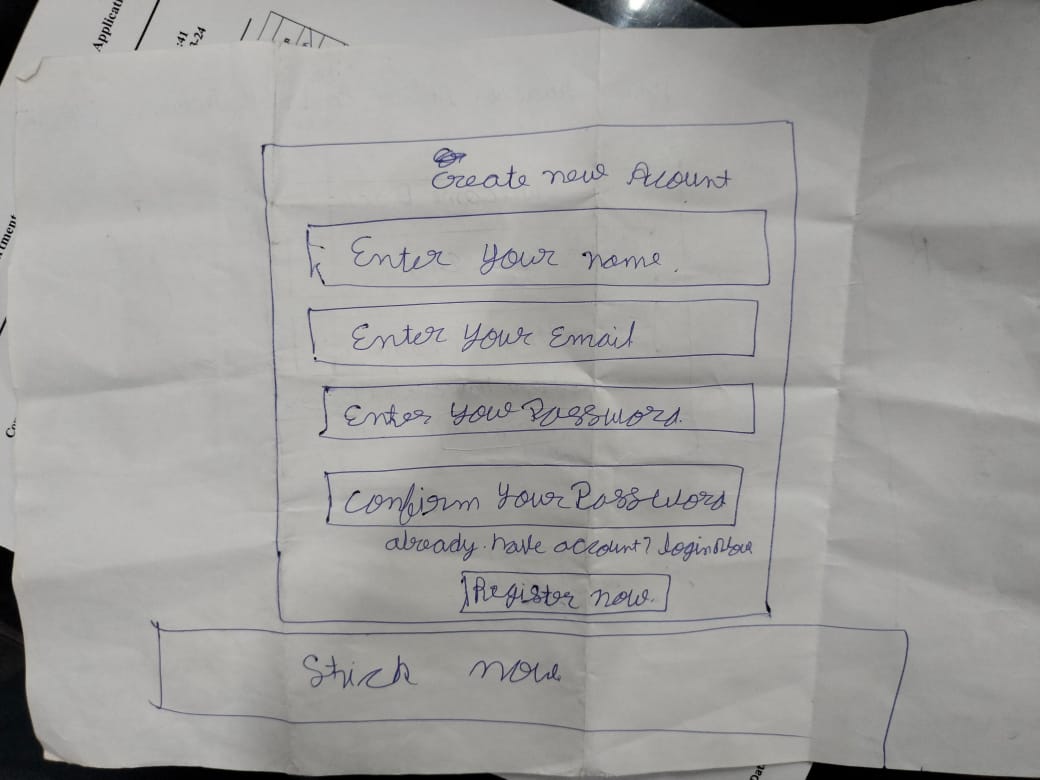 Applicati
:41
-24
Create new Acount
Enter your name.
Enter your Email
Enter your Password.
Confirm your Password
already have account? login Now
Register now.
Stick now